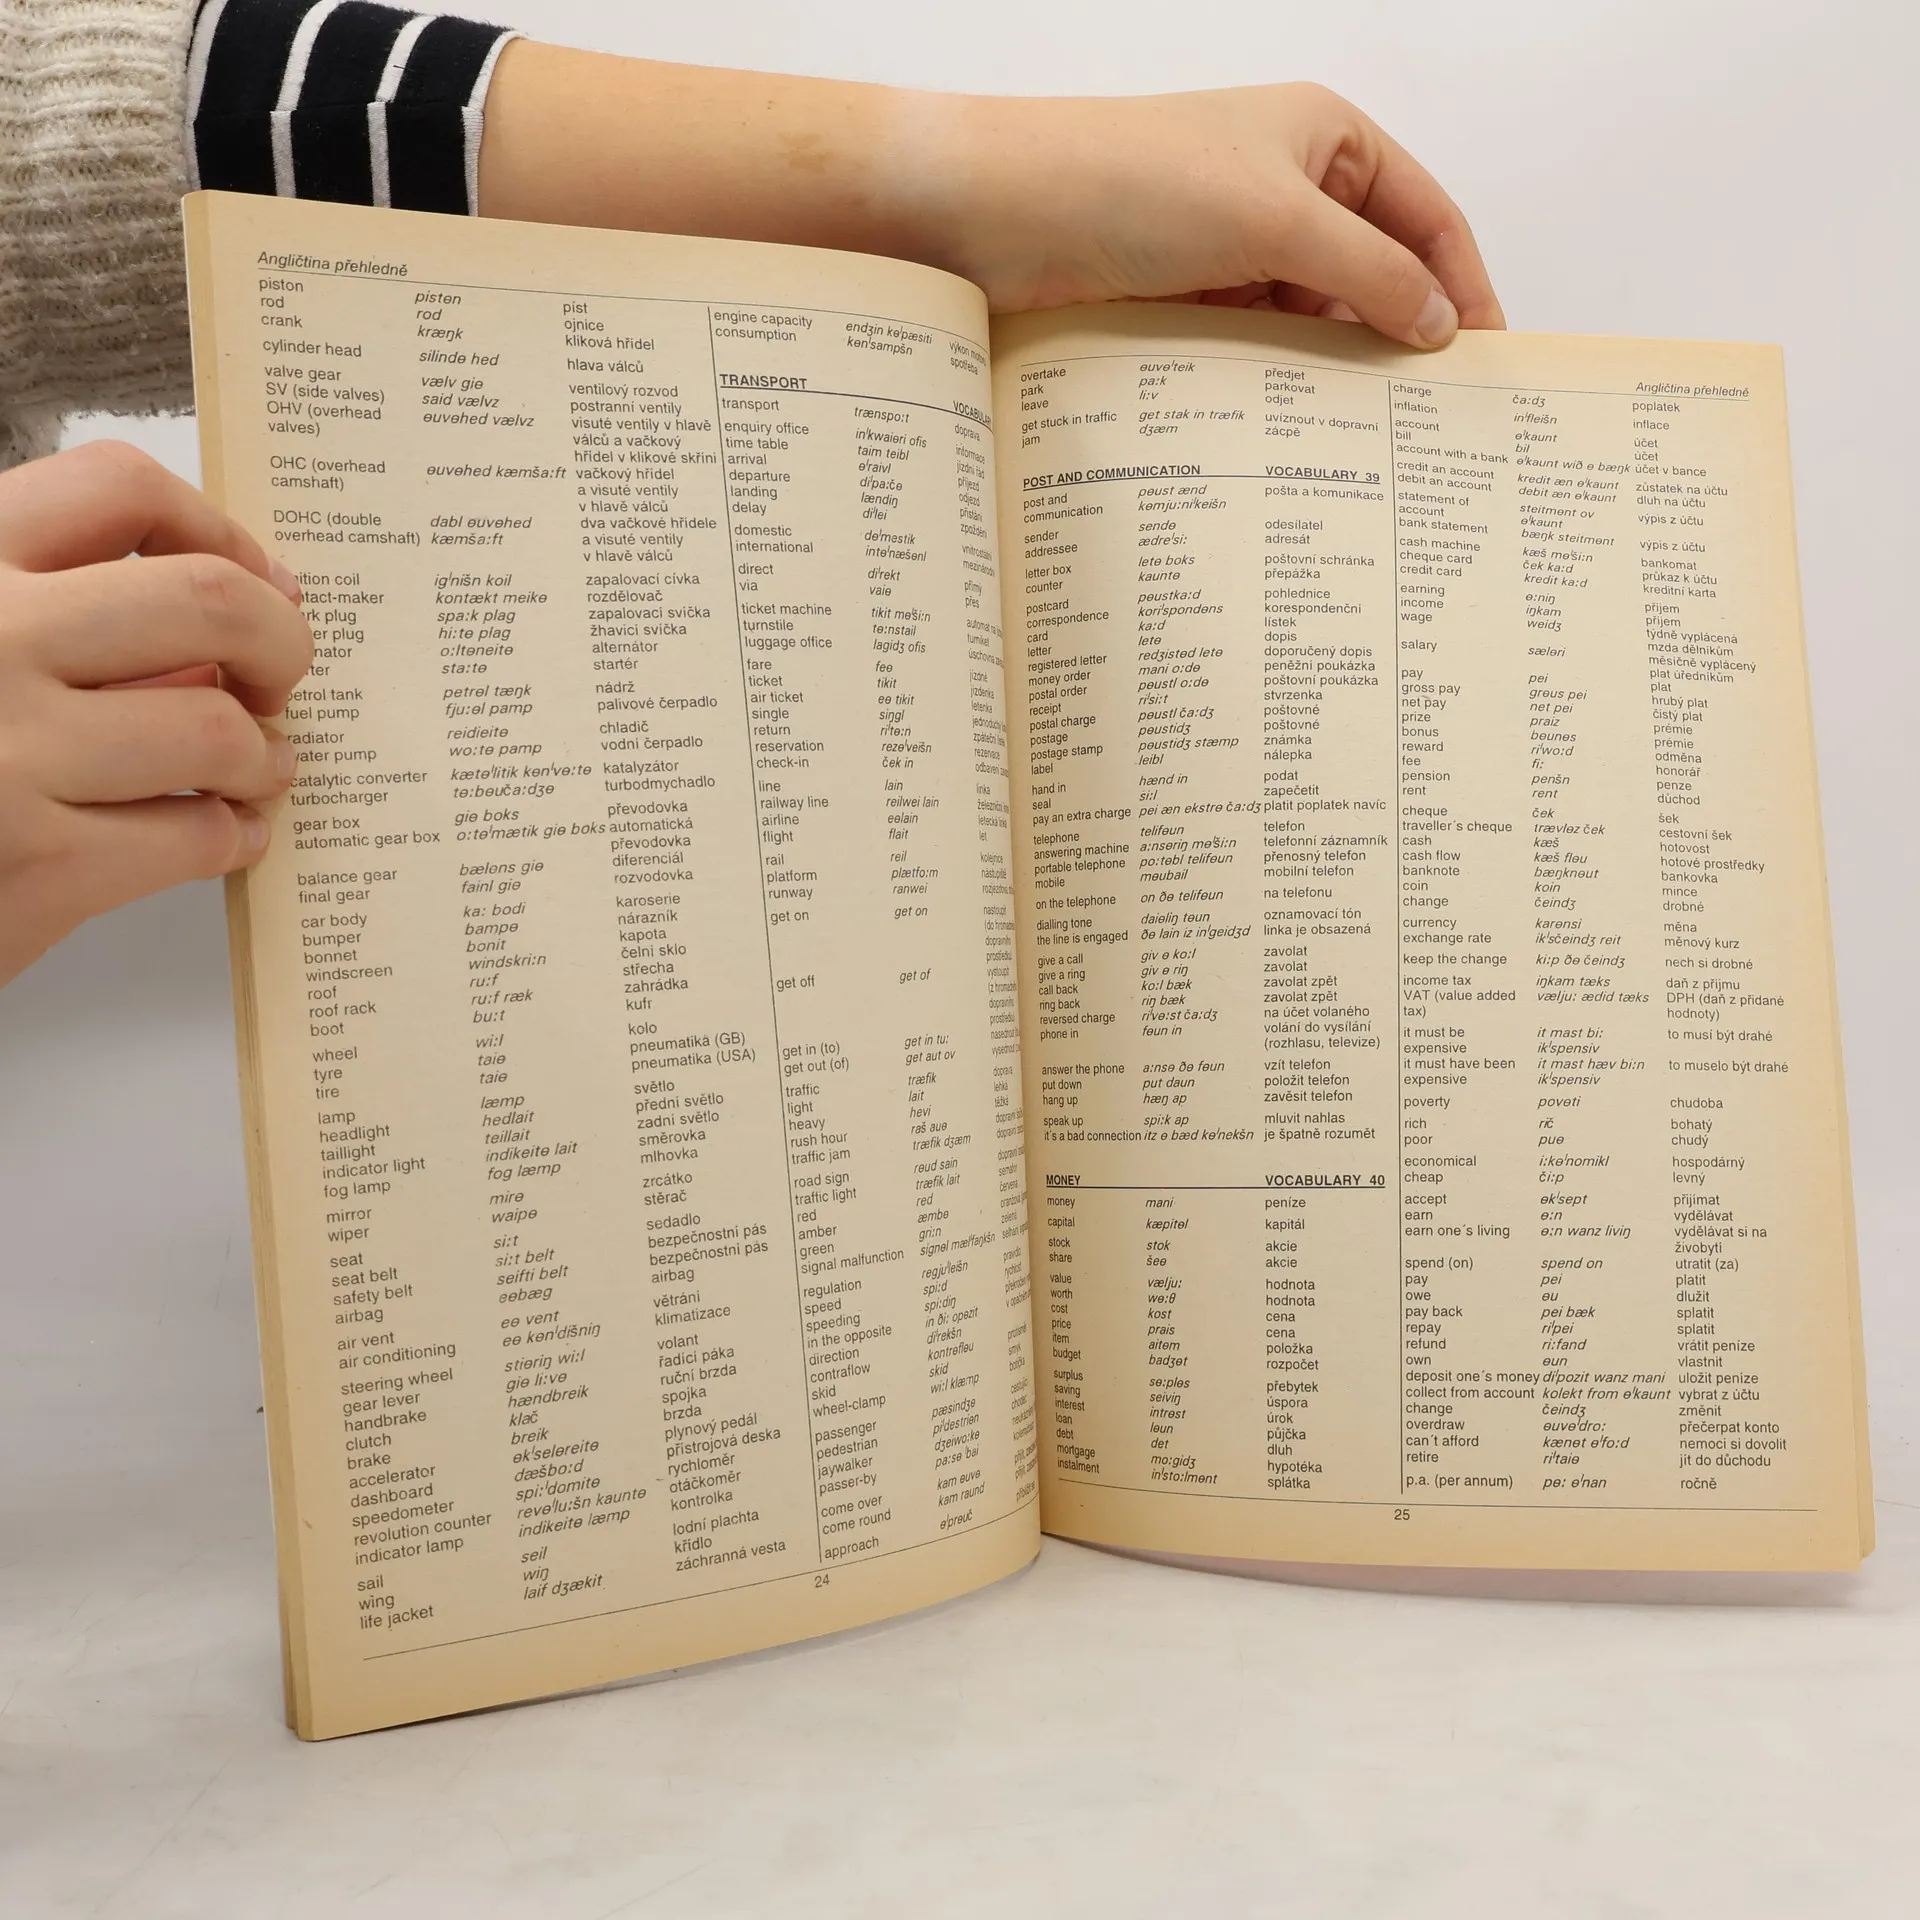 Angličtina přehledně
piston pistɵn píst
rod rod ojnice
crank kræŋk kliková hřídel
cylinder head silindɵ hed hlava válců
valve gear vælv giɵ ventilový rozvod
SV (side valves) said vælvz postranní ventily
OHV (overhead ɵuvɵhed vælvz visuté ventily v hlavě
valves) válců a vačkový
hřídel v klikové skříni
OHC (overhead ɵuvɵhed kæmša:ft vačkový hřídel
camshaft) a visuté ventily
v hlavě válců
DOHC (double dabl ɵuvɵhed dva vačkové hřídele
overhead camshaft) kæmša:ft a visuté ventily
v hlavě válců
coil igˈnišn koil zapalovací cívka
kontækt meikɵ rozdělovač
plug spa:k plag zapalovací svíčka
plug hi:tɵ plag žhavicí svíčka
o:ltɵneitɵ alternátor
sta:tɵ startér
petrol tank petrɵl tæŋk nádrž
fuel pump fju:ɵl pamp palivové čerpadlo
radiator reidieitɵ chladič
water pump wo:tɵ pamp vodní čerpadlo
catalytic converter kætɵˈlitik kɵnˈvɵ:tɵ katalyzátor
turbocharger tɵ:bɵuča:dʒɵ turbodmychadlo
gear box giɵ boks převodovka
automatic gear box o:tɵˈmætik giɵ boks automatická
převodovka
balance gear bælɵns giɵ diferenciál
final gear fainl giɵ rozvodovka
car body ka: bodi karoserie
bumper bampɵ nárazník
bonnet bonit kapota
windscreen windskri:n čelní sklo
roof ru:f střecha
roof rack ru:f ræk zahrádka
boot bu:t kufr
wheel wi:l kolo
tyre taiɵ pneumatika (GB)
tire taiɵ pneumatika (USA)
lamp læmp světlo
headlight hedlait přední světlo
taillight teillait zadní světlo
indicator light indikeitɵ lait směrovka
fog lamp fog læmp mlhovka
mirror mirɵ zrcátko
wiper waipɵ stěrač
seat si:t sedadlo
seat belt si:t belt bezpečnostní pás
safety belt seifti belt bezpečnostní pás
airbag eɵbæg airbag
air vent eɵ vent větrání
air conditioning eɵ kɵnˈdišniŋ klimatizace
steering wheel stiɵriŋ wi:l volant
gear lever giɵ li:vɵ řadicí páka
handbrake hændbreik ruční brzda
clutch klač spojka
brake breik brzda
accelerator ɵkˈselɵreitɵ plynový pedál
dashboard dæšbo:d přístrojová deska
speedometer spi:ˈdomitɵ rychloměr
revolution counter revɵˈlu:šn kauntɵ otáčkoměr
indicator lamp indikeitɵ læmp kontrolka
sail seil lodní plachta
wing wiŋ křídlo
life jacket laif dʒækit záchranná vesta
engine capacity endʒin kɵˈpæsiti výkon motoru
consumption kɵnˈsampšn spotřeba
TRANSPORT
transport trænspo:t doprava
enquiry office inˈkwaiɵri ofis informace
time table taim teibl jízdní řád
arrival ɵˈraivl příjezd
departure diˈpa:čɵ odjezd
landing lændiŋ přistání
delay diˈlei zpoždění
domestic dɵˈmestik
international intɵˈnæšɵnl
direct diˈrekt přímý
via vaiɵ přes
ticket machine tikit mɵˈši:n
turnstile tɵ:nstail turniket
luggage office lagidʒ ofis
fare feɵ jízdné
ticket tikit jízdenka
air ticket eɵ tikit letenka
single siŋgl
return riˈtɵ:n
reservation rezɵˈveišn
check-in ček in
line lain linka
railway line reilwei lain
airline eɵlain
flight flait let
rail reil kolejnice
platform plætfo:m nástupiště
runway ranwei
get on get on nastoupit
get off get of vystoupit
get in (to) get in tu:
get out (of) get aut ov
traffic træfik doprava
light lait lehká
heavy hevi těžká
rush hour raš auɵ
traffic jam træfik dʒæm
road sign rɵud sain
traffic light træfik lait semafor
red red červená
amber æmbɵ
green gri:n zelená
signal malfunction signɵl mælˈfaŋkšn
regulation regjuˈleišn pravidlo
speed spi:d rychlost
speeding spi:diŋ
in the opposite in ði: opɵzit
direction diˈrekšn
contraflow kontrɵflɵu
skid skid smyk
wheel-clamp wi:l klæmp botička
passenger pæsindʒɵ
pedestrian piˈdestriɵn chodec
jaywalker dʒeiwo:kɵ
passer-by pa:sɵ ˈbai
come over kam ɵuvɵ
come round kam raund
approach ɵˈprɵuč
24
Angličtina přehledně
overtake ɵuvɵˈteik předjet
park pa:k parkovat
leave li:v odjet
get stuck in traffic get stak in træfik uvíznout v dopravní
jam dʒæm zácpě
POST AND COMMUNICATION VOCABULARY 39
post and pɵust ænd pošta a komunikace
communication kɵmju:niˈkeišn
sender sendɵ odesílatel
addressee ædreˈsi: adresát
letter box letɵ boks poštovní schránka
counter kauntɵ přepážka
postcard pɵustka:d pohlednice
correspondence koriˈspondɵns korespondenční
card ka:d lístek
letter letɵ dopis
registered letter redʒistɵd letɵ doporučený dopis
money order mani o:dɵ peněžní poukázka
postal order pɵustl o:dɵ poštovní poukázka
receipt riˈsi:t stvrzenka
postal charge pɵustl ča:dʒ poštovné
postage pɵustidʒ poštovné
postage stamp pɵustidʒ stæmp známka
label leibl nálepka
hand in hænd in podat
seal si:l zapečetit
pay an extra charge pei æn ekstrɵ ča:dʒ platit poplatek navíc
telephone telifɵun telefon
answering machine a:nsɵriŋ mɵˈši:n telefonní záznamník
portable telephone po:tɵbl telifɵun přenosný telefon
mobile mɵubail mobilní telefon
on the telephone on ðɵ telifɵun na telefonu
dialling tone daiɵliŋ tɵun oznamovací tón
the line is engaged ðɵ lain iz inˈgeidʒd linka je obsazená
give a call giv ɵ ko:l zavolat
give a ring giv ɵ riŋ zavolat
call back ko:l bæk zavolat zpět
ring back riŋ bæk zavolat zpět
reversed charge riˈvɵ:st ča:dʒ na účet volaného
phone in fɵun in volání do vysílání
(rozhlasu, televize)
answer the phone a:nsɵ ðɵ fɵun vzít telefon
put down put daun položit telefon
hang up hæŋ ap zavěsit telefon
speak up spi:k ap mluvit nahlas
it´s a bad connection itz ɵ bæd kɵˈnekšn je špatně rozumět
MONEY VOCABULARY 40
money mani peníze
capital kæpitɵl kapitál
stock stok akcie
share šeɵ akcie
value vælju: hodnota
worth wɵ:θ hodnota
cost kost cena
price prais cena
item aitɵm položka
budget badʒɵt rozpočet
surplus sɵ:plɵs přebytek
saving seiviŋ úspora
interest intrɵst úrok
loan lɵun půjčka
debt det dluh
mortgage mo:gidʒ hypotéka
instalment inˈsto:lmɵnt splátka
charge ča:dʒ poplatek
inflation inˈfleišn inflace
account ɵˈkaunt účet
bill bil účet
account with a bank ɵˈkaunt wið ɵ bæŋk účet v bance
credit an account kredit æn ɵˈkaunt zůstatek na účtu
debit an account debit æn ɵˈkaunt dluh na účtu
statement of steitmɵnt ov výpis z účtu
account ɵˈkaunt
bank statement bæŋk steitmɵnt výpis z účtu
cash machine kæš mɵˈši:n bankomat
cheque card ček ka:d průkaz k účtu
credit card kredit ka:d kreditní karta
earning ɵ:niŋ příjem
income iŋkam příjem
wage weidʒ týdně vyplácená
mzda dělníkům
salary sælɵri měsíčně vyplácený
plat úředníkům
pay pei plat
gross pay grɵus pei hrubý plat
net pay net pei čistý plat
prize praiz prémie
bonus bɵunɵs prémie
reward riˈwo:d odměna
fee fi: honorář
pension penšn penze
rent rent důchod
cheque ček šek
traveller´s cheque trævlɵz ček cestovní šek
cash kæš hotovost
cash flow kæš flɵu hotové prostředky
banknote bæŋknɵut bankovka
coin koin mince
change čeindʒ drobné
currency karɵnsi měna
exchange rate ikˈsčeindʒ reit měnový kurz
keep the change ki:p ðɵ čeindʒ nech si drobné
income tax iŋkam tæks daň z příjmu
VAT (value added vælju: ædid tæks DPH (daň z přidané
tax) hodnoty)
it must be it mast bi: to musí být drahé
expensive ikˈspensiv
it must have been it mast hæv bi:n to muselo být drahé
expensive ikˈspensiv
poverty povɵti chudoba
rich rič bohatý
poor puɵ chudý
economical i:kɵˈnomikl hospodárný
cheap či:p levný
accept ɵkˈsept přijímat
earn ɵ:n vydělávat
earn one´s living ɵ:n wanz liviŋ vydělávat si na
živobytí
spend (on) spend on utratit (za)
pay pei platit
owe ɵu dlužit
pay back pei bæk splatit
repay riˈpei splatit
refund ri:fand vrátit peníze
own ɵun vlastnit
deposit one´s money diˈpozit wanz mani uložit peníze
collect from account kolekt from ɵˈkaunt vybrat z účtu
change čeindʒ změnit
overdraw ɵuvɵˈdro: přečerpat konto
can´t afford kænɵt ɵˈfo:d nemoci si dovolit
retire riˈtaiɵ jít do důchodu
p.a. (per annum) pɵ: ɵˈnan ročně
25